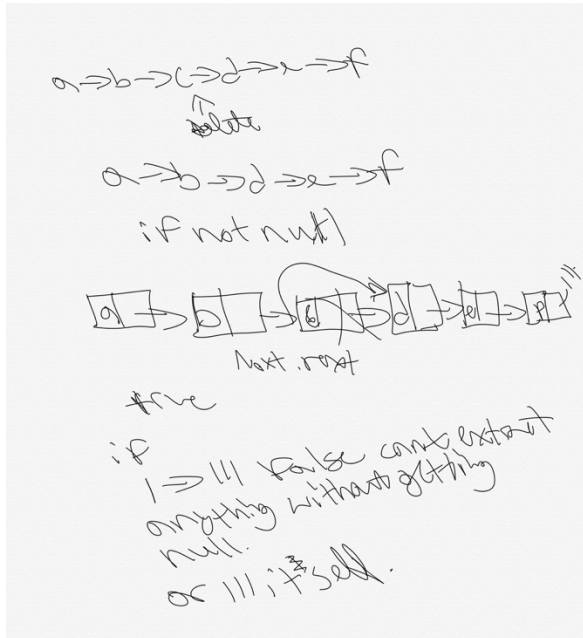 a → b → c → d → e → f
delete
a → b → d → e → f
if not null
a b c d e f
Next.next
true
if
1 → 111 false cant extract
anything without getting
null.
or 111 it self.